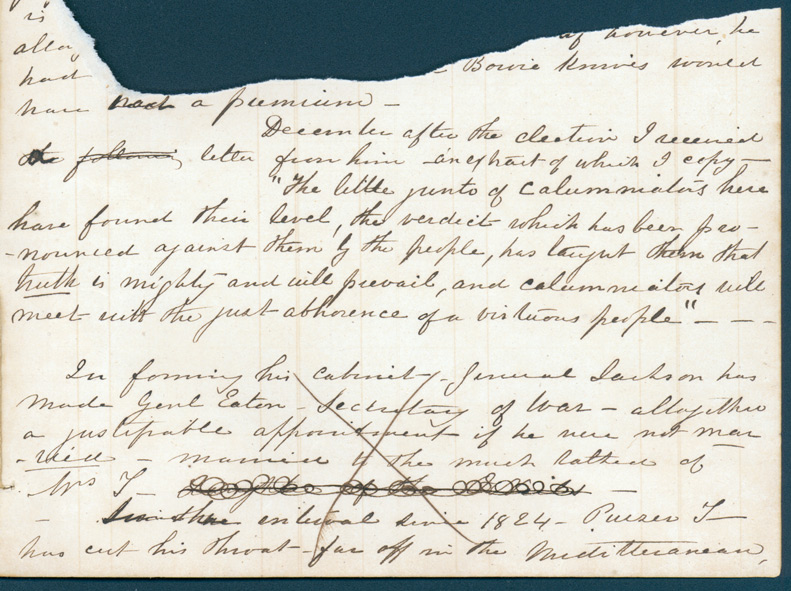 is
allo
had if however, he
had — Bowie knives would
have had a premium —
December after the election I received
the following letter from him — an extract of which I copy —
"The little junto of Calumniators here
have found their level, the verdict which has been pro-
-nounced against them by the people, has taught them that
truth is mighty and will prevail, and calumniators will
meet with the just abhorence of a virtuous people" — — —
In forming his cabinet — General Jackson has
made Genl Eaton — Secretary of War — altogether
a justifiable appointment if he were not mar
-ried — married to the much talked of
Mrs T —
— In the interval since 1824 — Purser T —
has cut his throat — far off in the Mediterranean,